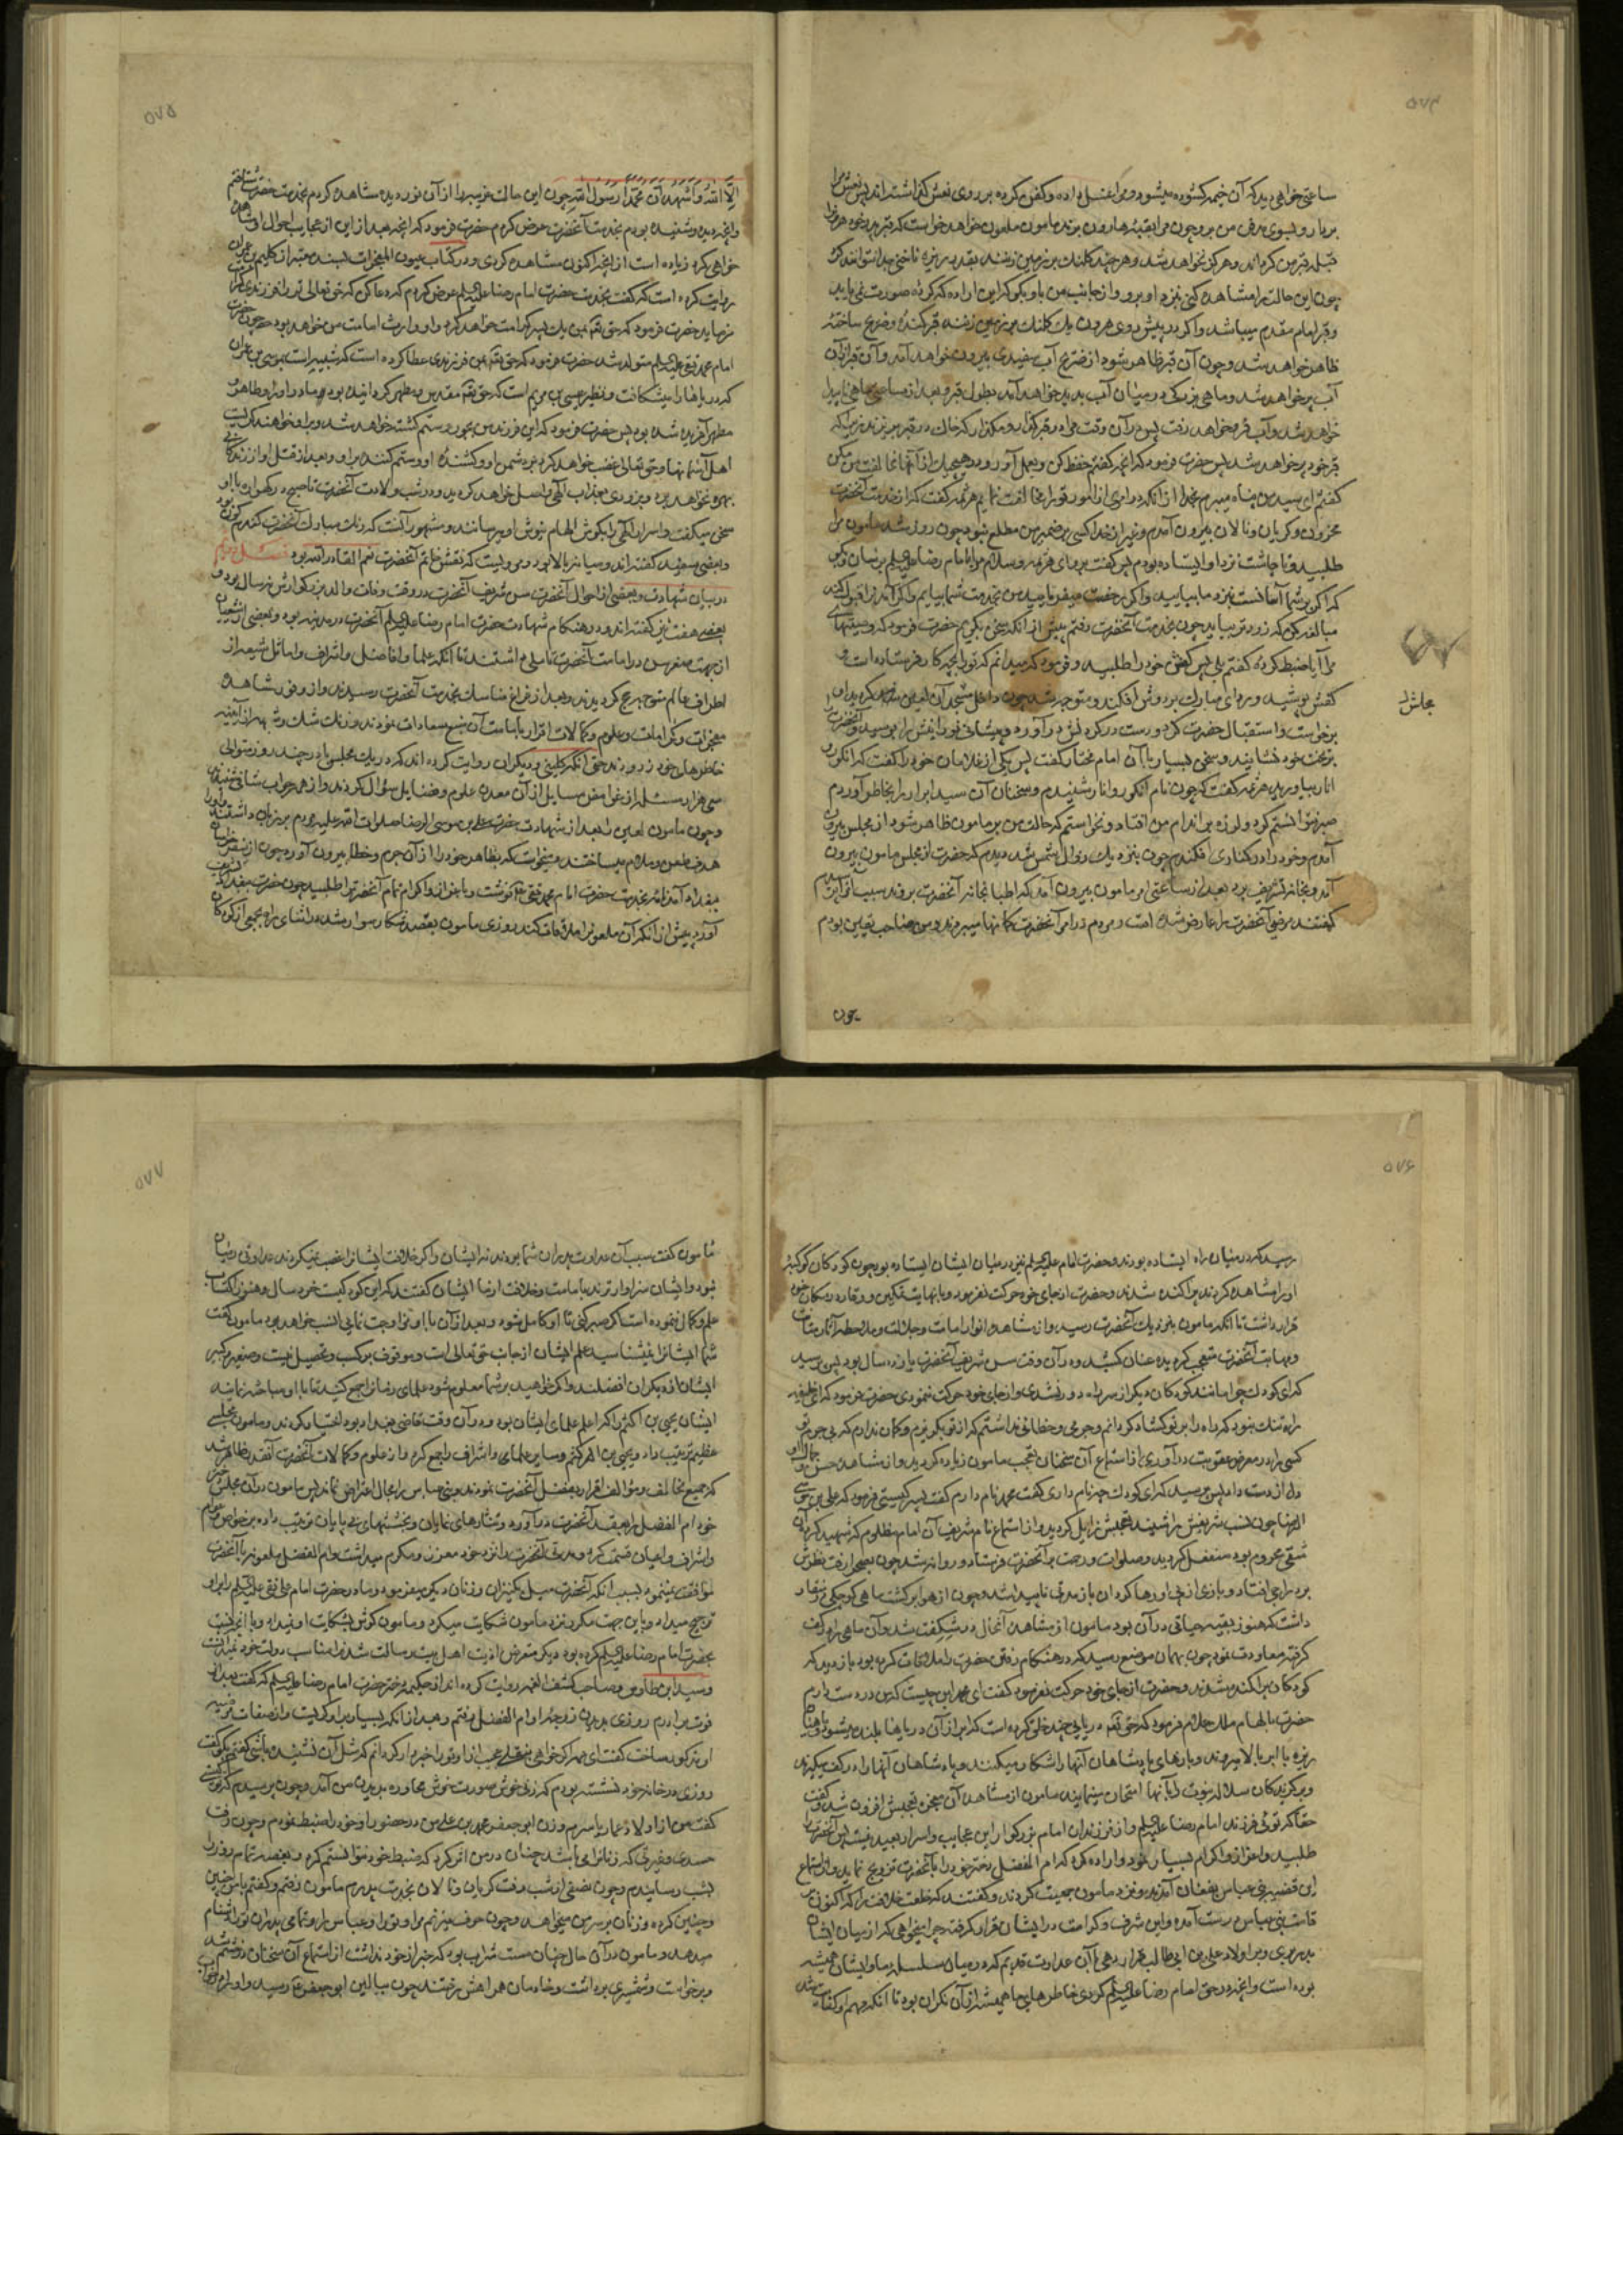 ۵۷۴
ساعتی خواهی دید که آن خیمه کشوده میشود و مرا غسل داده و کفن کرده بر روی نعش گذاشته اند پس نعش مرا
بردارو بسوی مدفن من برو چون مرا بقبه هارون برند مامون ملعون خواهد خواست که قبر پدر خود هرون را
قبله قبر من کرداند و هرکز نخواهد شد و هر چند کلنك بر زمین زنند بقدر ریزه ناخنی جدا نتوانند کرد
چون این حالت را مشاهده کنی نزد او برو و از جانب من باو بکو که این اراده که کرده صورت نمی یابد
و قبر امام مقدم میباشد و اکر در پیش روی هرون یك کلنك بر زمین زنند قبر کنده و ضریح ساخته
ظاهر خواهد شد و چون آن قبر ظاهر شود از ضریح آب سفیدی بیرون خواهد آمد و آن قبر از آن
آب پر خواهد شد و ماهی بزرکی در میان آب پدید خواهد آمد بطول قبر و بعد از ساعتی ماهی ناپیدا
خواهد شد و آب فرو خواهد رفت پس در آن وقت مرا در قبر گذار و مگذار که خاك در قبر بریزند زیرا که
قبر خود پر خواهد شد پس حضرت فرمود که آنچه کفتم حفظ کن و بعمل آور و در هیچیك از آنها مخالفت من مکن
کفتم ای سید من پناه میبرم بخدا از آنکه در امری از امور تو را مخالفت نمایم هرثمه کفت که از خدمت آنحضرت
محزون و کریان و نالان بیرون آمدم و غیر از خدا کسی بر ضمیر من مطلع نبود چون روز شد مامون مرا
طلبید و تا چاشت نزد او ایستاده بودم پس کفت برو ای هرثمه و سلام مرا بامام رضا علیه السلام برسان و بکو
که اکر بر شما آسانست نزد ما بیایید و اکر رخصت میفرمایید من بخدمت شما بیایم و اکر آمدنرا قبول کنند
مبالغه کن که زودتر بیاید چون بخدمت آنحضرت رفتم پیش از آنکه سخن بگویم حضرت فرمود که وصیتهای
مرا آیا ضبط کرده کفتم بلی پس کفش خود را طلبید و فرمود که میدانم که تو را بچه کار فرستاده است و
کفش پوشید و ردای مبارك بر دوش افکند و متوجه شد چون داخل مجلس آن لعین کردید او
برخواست و استقبال حضرت کرد و دست در کردنش در آورد و پیشانی نورانیش را بوسید و آنحضرت را
بر تخت خود نشانید و سخن بسیار با آن امام مختار کفت پس یکی از غلامان خود را کفت که انکور و
انار بیاورید هرثمه کفت که چون نام انکور و انار شنیدم و سخنان آن سید ابرار را بخاطر آوردم
صبر نتوانستم کرد و لرزه بر اندام من افتاد و نخواستم که حالت من بر مامون ظاهر شود از مجلس بیرون
آمدم و خود را در کناری افکندم چون نزدیك زوال شمس شد دیدم که حضرت از مجلس مامون بیرون
آمد و بخانه تشریف برد بعد از ساعتی امر مامون بیرون آمد که اطبا بخانه آنحضرت بروند سبب آنرا پرسیدم
کفتند مرضی آنحضرت را عارض شده است و مردم در امر آنحضرت کمانها میبردند و من صاحب یقین بودم
مجلش
چون
۵۷۵
اِلّا اللهُ وَاَشْهَدُ اَنَّ مُحَمَّدًا رَسُولُ اللهِ چون این حالت غریب را از آن نور دیده مشاهده کردم بخدمت حضرت شتافتم
و آنچه دیده و شنیده بودم بخدمت آنحضرت عرض کردم حضرت فرمود که آنچه بعد از این از عجایب احوال او مشاهده
خواهی کرد زیاده است از آنچه اکنون مشاهده کردی و در کتاب عیون المعجزات بسند معتبر از کلیم بن عمران
روایت کرده است که کفت بخدمت حضرت امام رضا علیه السلام عرض کردم که دعا کن که حق تعالی تو را فرزندی کرامت
فرماید حضرت فرمود که حق تعه بمن یك پسر کرامت خواهد کرد و او وارث امامت من خواهد بود چون حضرت
امام محمد تقی علیه السلام متولد شد حضرت فرمود که حق تعه بمن فرزندی عطا کرده است که شبیه است بموسی بن عمران
که دریاها را میشکافت و نظیر عیسی بن مریم است که حق تعه مقدس و مطهر کردانیده بود مادر او را و طاهر و
مطهر آفریده شده بود پس حضرت فرمود که این فرزند من بجور و ستم کشته خواهد شد و بر او خواهند کریست
اهل آسمانها و حق تعالی غضب خواهد کرد بر دشمن او و کشنده او و ستم کننده بر او و بعد از قتل او از زندکانی
بهره نخواهد برد و بزودی بعذاب الهی واصل خواهد کردید و در شب ولادت آنحضرت تا صبح در کهواره با او
سخن میکفت و اسرار الهی را بکوش الهام نیوش او میرسانید و مشهور آنست که رنك مبارك آنحضرت کندم کون بود
و بعضی سفید کفته اند و میانه بالا بود و مرویست که نقش خاتم آنحضرت نعم القادر الله بود فصل دوم
در بیان شهادت و بعضی از احوال آنحضرت سن شریف آنحضرت در وقت وفات والد بزرکوارش نه سال بود و
بعضی هفت نیز کفته اند و در هنکام شهادت حضرت امام رضا علیه السلام آنحضرت در مدینه بود و بعضی از شیعیان
از جهت صغر سن در امامت آنحضرت تاملی داشتند تا آنکه علما و افاضل و اشراف و اماثل شیعه از
اطراف عالم متوجه حج کردیدند و بعد از فراغ مناسك بخدمت آنحضرت رسیدند و از وفور مشاهده
معجزات و کرامات و علوم و کمالات اقرار بامامت آن منبع سعادات نمودند و زنك شك و شبهه از آیینه
خاطرهای خود زدودند حتی آنکه کلینی و دیکران روایت کرده اند که در یك مجلس یا در چند روز متوالی
سی هزار مسئله از غوامض مسایل از آن معدن علوم و فضایل سؤال کردند و از همه جواب شافی شنیدند
و چون مامون لعین را بعد از شهادت حضرت علی بن موسی الرضا صلوات الله علیه مردم بر زبان داشتند و او را
هدف طعن و ملام میساختند میخواست که بظاهر خود را از آن جرم و خطا بیرون آورد چون از سفر خراسان
ببغداد آمد نامه بخدمت حضرت امام محمد تقی ع نوشت و باعزاز و اکرام تمام آنحضرت را طلبید چون حضرت ببغداد تشریف
آورد پیش از آنکه آن ملعونرا ملاقات کند روزی مامون بقصد شکار سوار شد در اثنای راه بجمعی از کودکان
۵۷۶
رسید که در میان راه ایستاده بودند و حضرت امام علیه السلام نیز در میان ایشان ایستاده بود چون کودکان کوکبه
او را مشاهده کردند پراکنده شدند و حضرت از جای خود حرکت نفرمود و با نهایت تمکین و وقار در مکان خود
قرار داشت تا آنکه مامون بنزدیك آنحضرت رسید و از مشاهده انوار امامت و جلالت و ملاحظه آثار متانت
و مهابت آنحضرت متعجب کردیده عنان کشید و در آن وقت سن شریف آنحضرت یازده سال بود پس پرسید
که ای کودك چرا مانند کودکان دیکر از سر راه دور نشدی و از جای خود حرکت ننمودی حضرت فرمود که ای خلیفه
راه تنك نبود که راه را بر تو کشاده کردانم و جرمی و خطائی نداشتم که از تو بکریزم و کمان ندارم که بی جرم تو
کسی را در معرض عقوبت در آوری از استماع آن سخنان تعجب مامون زیاده کردید و از مشاهده حسن و جمال او
دل از دست داد پس پرسید که ای کودك چه نام داری کفت محمد نام دارم کفت پسر کیستی فرمود که علی بن موسی
الرضا چون نسب شریفش را شنید تعجبش زایل کردید و از استماع نام شریف آن امام مظلوم که شهید کرده آن
شقی محروم بود منفعل کردید و صلوات و رحمت بر آنحضرت فرستاد و روانه شد چون بصحرا رفت نظرش
بر دراجی افتاد و بازی از پی او رها کرد آن باز مدتی ناپیدا شد و چون از هوا برکشت ماهی کوچکی در منقار
داشت که هنوز بقیه حیاتی در آن بود مامون از مشاهده آنحال در شکفت شد و آن ماهی را در کف
کرفته معاودت نمود چون بهمان موضع رسید که در هنکام رفتن حضرت را ملاقات کرده بود باز دید که
کودکان پراکنده شدند و حضرت از جای خود حرکت نفرمود کفت ای محمد این چیست که من در دست دارم
حضرت بالهام ملك علام فرمود که حق تعه دریایی چند خلق کرده است که ابر از آن دریاها بلند میشود و ماهیان
ریزه با ابر بالا میروند و بازهای پادشاهان آنها را شکار میکنند و پادشاهان آنها را در کف میکیرند
و برکزیدکان سلاله نبوت را بآنها امتحان مینمایند مامون از مشاهده آن معجزه تعجبش افزون شد و کفت
حقا که توئی فرزند امام رضا علیه السلام و از فرزندان امام بزرکوار این عجایب و اسرار بعید نیست پس آنحضرت را
طلبید و اعزاز و اکرام بسیار نمود و اراده کرد که ام الفضل دختر خود را بآنحضرت تزویج نماید و از استماع
این قضیه بنی عباس بفغان آمدند و نزد مامون جمعیت کردند و کفتند که خلعت خلافت را که اکنون بر
قامت بنی عباس رست آمده و این شرف و کرامت در ایشان قرار کرفته چرا میخواهی که از میان ایشان
بدر بری و بر اولاد علی بن ابی طالب قرار دهی با آن عداوت قدیم که در میان سلسله ما و ایشان همیشه
بوده است و آنچه در حق امام رضا علیه السلام کردی خاطرهای ما همیشه از آن نکران بود تا آنکه مهم او کفایت شد
۵۷۷
مامون کفت سبب آن عداوت پدران شما بودند نه ایشان و اکر خلافت ایشانرا غصب نمیکردند عداوتی در میان
نبود و ایشان سزاوارترند بامامت و خلافت از ما ایشان کفتند که این کودکیست خورد سال و هنوز اکتساب
علم و کمال ننموده است اکر صبر کنی تا او کامل شود و بعد از آن با او تزاوجت نمایی انسب خواهد بود مامون کفت
شما ایشانرا نمیشناسید علم ایشان از جانب حق تعالی است و موقوف بر کسب و تحصیل نیست و صغیر و کبیر
ایشان از دیکران افضلند و اکر خواهید بر شما معلوم شود علمای زمانرا جمع کنید تا با او مباحثه نمایند
ایشان یحیی بن اکثم را که اعلم علمای ایشان بود و در آن وقت قاضی بغداد بود اختیار کردند و مامون مجلسی
عظیم ترتیب داد و یحیی بن اکثم و سایر علما و اشراف را جمع کرد و از علوم و کمالات آنحضرت آنقدر ظاهر شد
که جمیع مخالف و مؤالف اقرار بفضل آنحضرت نمودند و بنی عباس را مجال اعتراض نماند پس مامون در آن مجلس دختر
خود ام الفضل را بعقد آنحضرت در آورد و نثارهای نمایان و بخششهای بی پایان ترتیب داده بر خواص و عوام
و اشراف و اعیان قسمت کرد و مدتی آنحضرت را نزد خود معزز و مکرم میداشت و ام الفضل ملعونه با آنحضرت
موافقت نمینمود بسبب آنکه آنحضرت میل بکنیزان و زنان دیکر میفرمود و مادر حضرت امام علی نقی علیه السلام را بر او
ترجیح میداد و باین جهت مکرر نزد مامون شکایت میکرد و مامون کوش بشکایت او نمیداد و بآنچه نسبت
بحضرت امام رضا علیه السلام کرده بود دیکر متعرض اذیت اهل بیت رسالت شدنرا مناسب دولت خود نمیدانست
و سید ابن طاوس و صاحب کشف الغمه روایت کرده اند از حکیمه دختر حضرت امام رضا علیه السلام که کفت بعد از
فوت برادرم روزی بدیدن زوجه او ام الفضل رفتم و بعد از آنکه بسیار بر او کریست و از صفات مرضیه
او مذکور ساخت کفت ای عمه اکر خواهی بنقلی عجب از او تو را خبردار کردانم که مثل آن نشنیده باشی کفتم بکو کفت
روزی در خانه خود نشسته بودم که زنی خوش صورت خوش محاوره بدیدن من آمد و چون پرسیدم که تو کیستی
کفت من از اولاد عمار یاسرم و زن ابو جعفر محمد بن علی من در حضور او خود را ضبط نمودم و چون رفت
حسدی و غیرتی که زنانرا میباشد چنان در من اثر کرد که ضبط خود نتوانستم کرد و بغصه تمام روز را
بشب رسانیدم و چون نصفی از شب رفت کریان و نالان بخدمت پدرم مامون رفتم و کفتم با من چنین
و چنین کرده و زنان بر سر من میخواهد و چون حرف میزنم مرا و تو را و عباس را و تمامی پدران تو را دشنام
میدهد و مامون در آن حال چنان مست شراب بود که خبر از خود نداشت از استماع آن سخنان در خشم شد
و برخواست و شمشیری برداشت و خادمان همراهش رفتند چون ببالین ابو جعفر ع رسید و او را در خواب